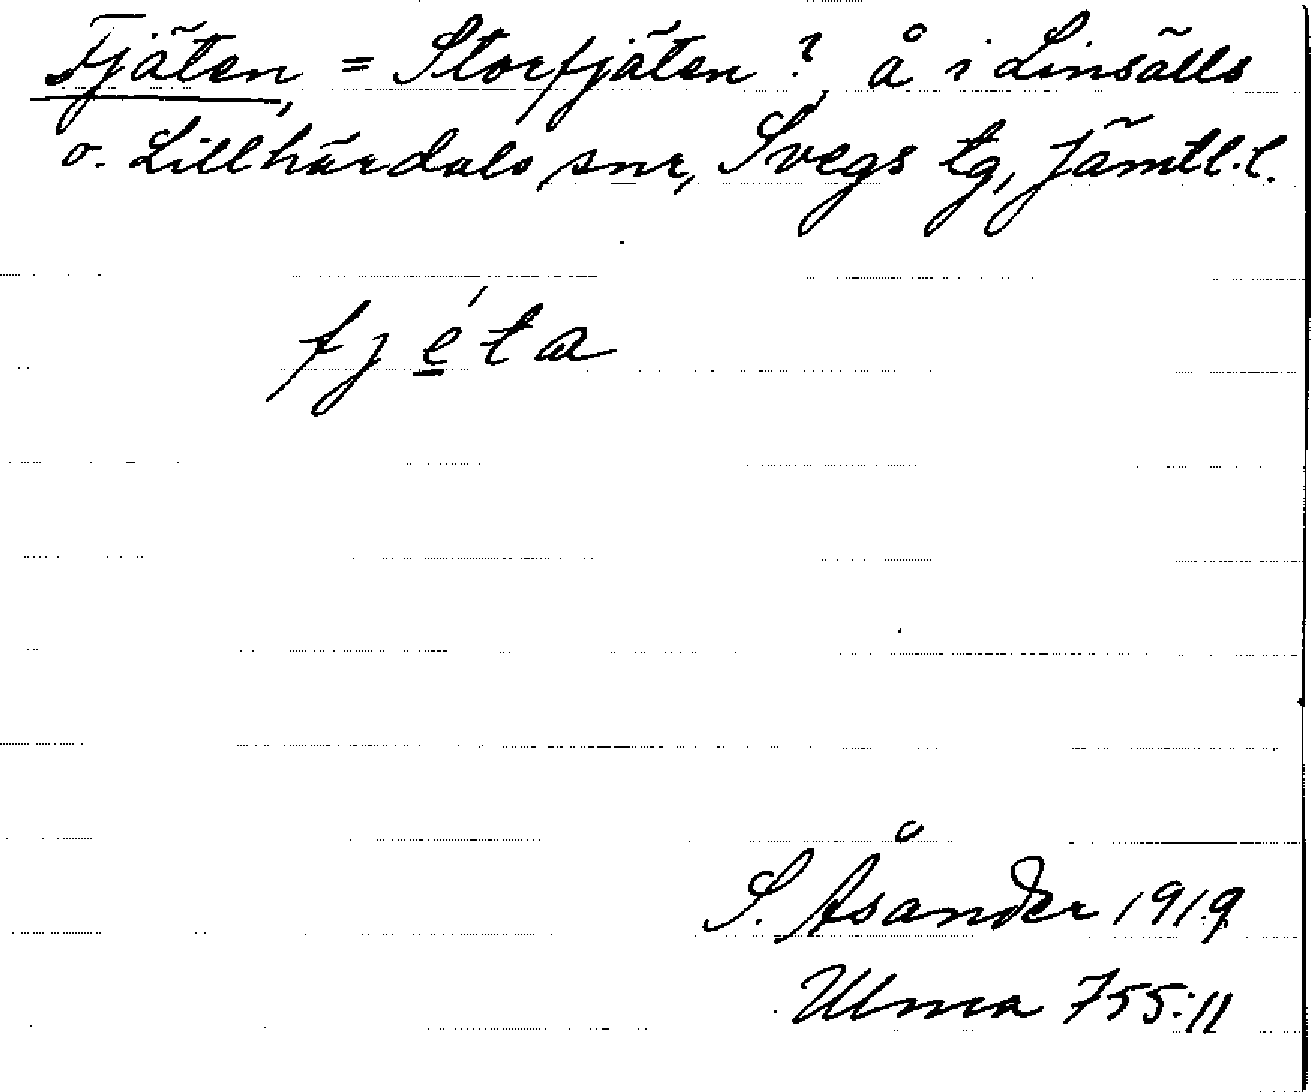 Fjäten, = Storfjäten?, å i Linsälls
o. Lillhärdals snr, Svegs tg, Jämtl. l.
fjéta
S. Åsander 1919
Ulma 755:11